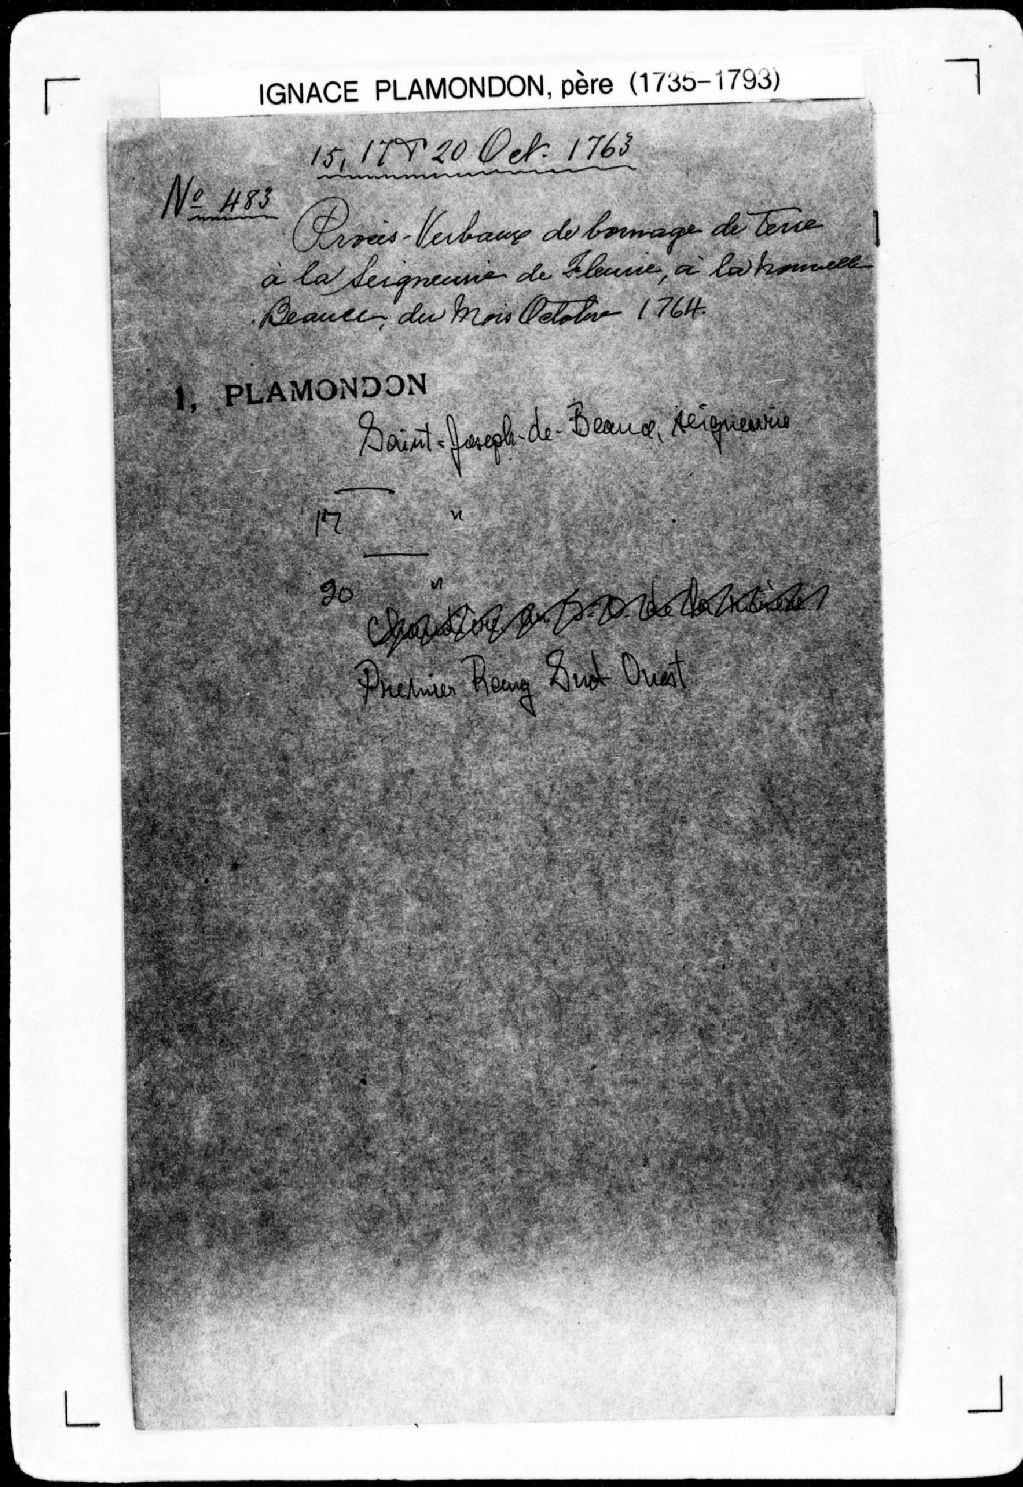 IGNACE PLAMONDON, père (1735-1793)
15, 17 & 20 Oct. 1763
No 483
Procès-Verbaux de bornage de Terre
à la Seigneurie de Fleurie, à la nouvelle
Beauce, du Mois Octobre 1764.
1, PLAMONDON
Saint-Joseph-de-Beauce, seigneurie
17 "
20 "
Premier Rang Sud Ouest